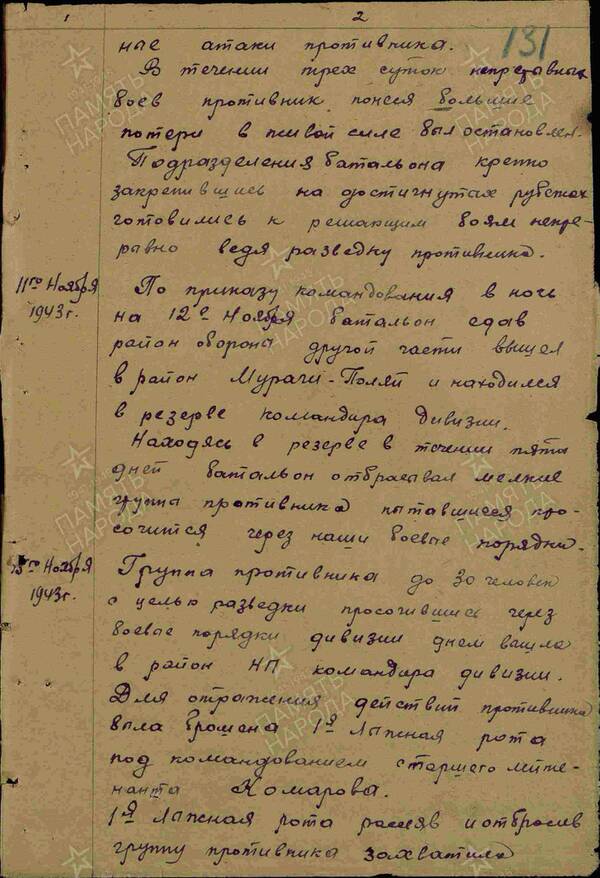 1
2
131
ные атаки противника.
В течении трех суток непрерывных
боев противник понеся большие
потери в живой силе был остановлен.
Подразделения батальона крепко
закрепившись на достигнутах рубежах
готовились к решающим боям непре-
рывно ведя разведку противника.
11го Ноября
1943г.
По приказу командования в ночь
на 12е Ноября батальон сдав
район обороны другой части вышел
в район Мурачи-Поляй и находился
в резерве командира дивизии.
Находясь в резерве в течении пяти
дней батальон отбрасывал мелкие
группы противника пытавшиеся про-
сочится через наши боевые порядки.
15го Ноября
1943г.
Группа противника до 30 человек
с целью разведки просочившись через
боевые порядки дивизии днем вышла
в район НП командира дивизии.
Для отражения действий противника
была брошена 1я Лыжная рота
под командованием старшего лейте-
нанта Комарова.
1я Лыжная рота рассеяв и отбросив
группу противника захватила
ПАМЯТЬ НАРОДА